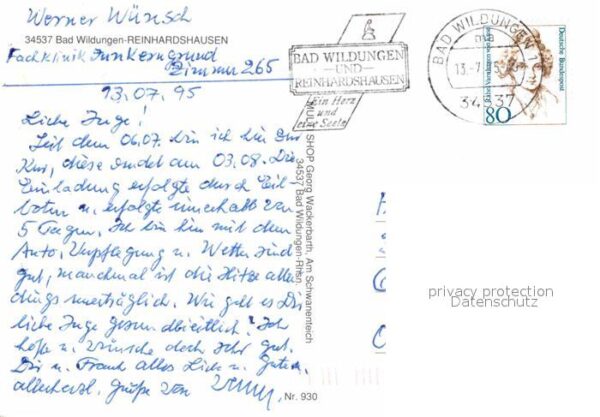 Werner Wünsch
34537 Bad Wildungen-REINHARDSHAUSEN
Fachklinik Funkerngrund
Zimmer 265
13.07.95
Liebe Inge!
Seit dem 06.07. bin ich hier zur
Kur, diese endet am 03.08. Die
Einladung erfolgte durch Eil-
boten u. erfolgte innerhalb von
5 Tagen. Ich bin hin mit dem
Auto, Verpflegung u. Wetter sind
gut, manchmal ist die Hitze aller
dings unerträglich. Wie geht es Dir
liebe Inge gesundheitlich? Ich
hoffe u. wünsche doch sehr gut.
Dir u. Frank alles Liebe u. Gute,
allerherzl. Grüße von
MULTI SHOP Georg Wackerbarth, Am Schwanenteich
34537 Bad Wildungen-Rhsn.
Nr. 930
BAD WILDUNGEN
UND
REINHARDSHAUSEN
Ein Herz
und
eine Seele
BAD WILDUNGEN 1
34537
Deutsche Bundespost
80
privacy protection
Datenschutz